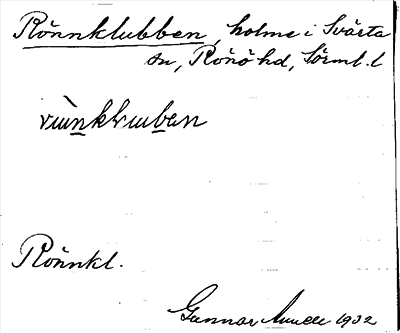 Rönnklubben, holme i Svärta
sn, Rönö hd, Sörml. l
Rönnkl.
Gunnar 1932